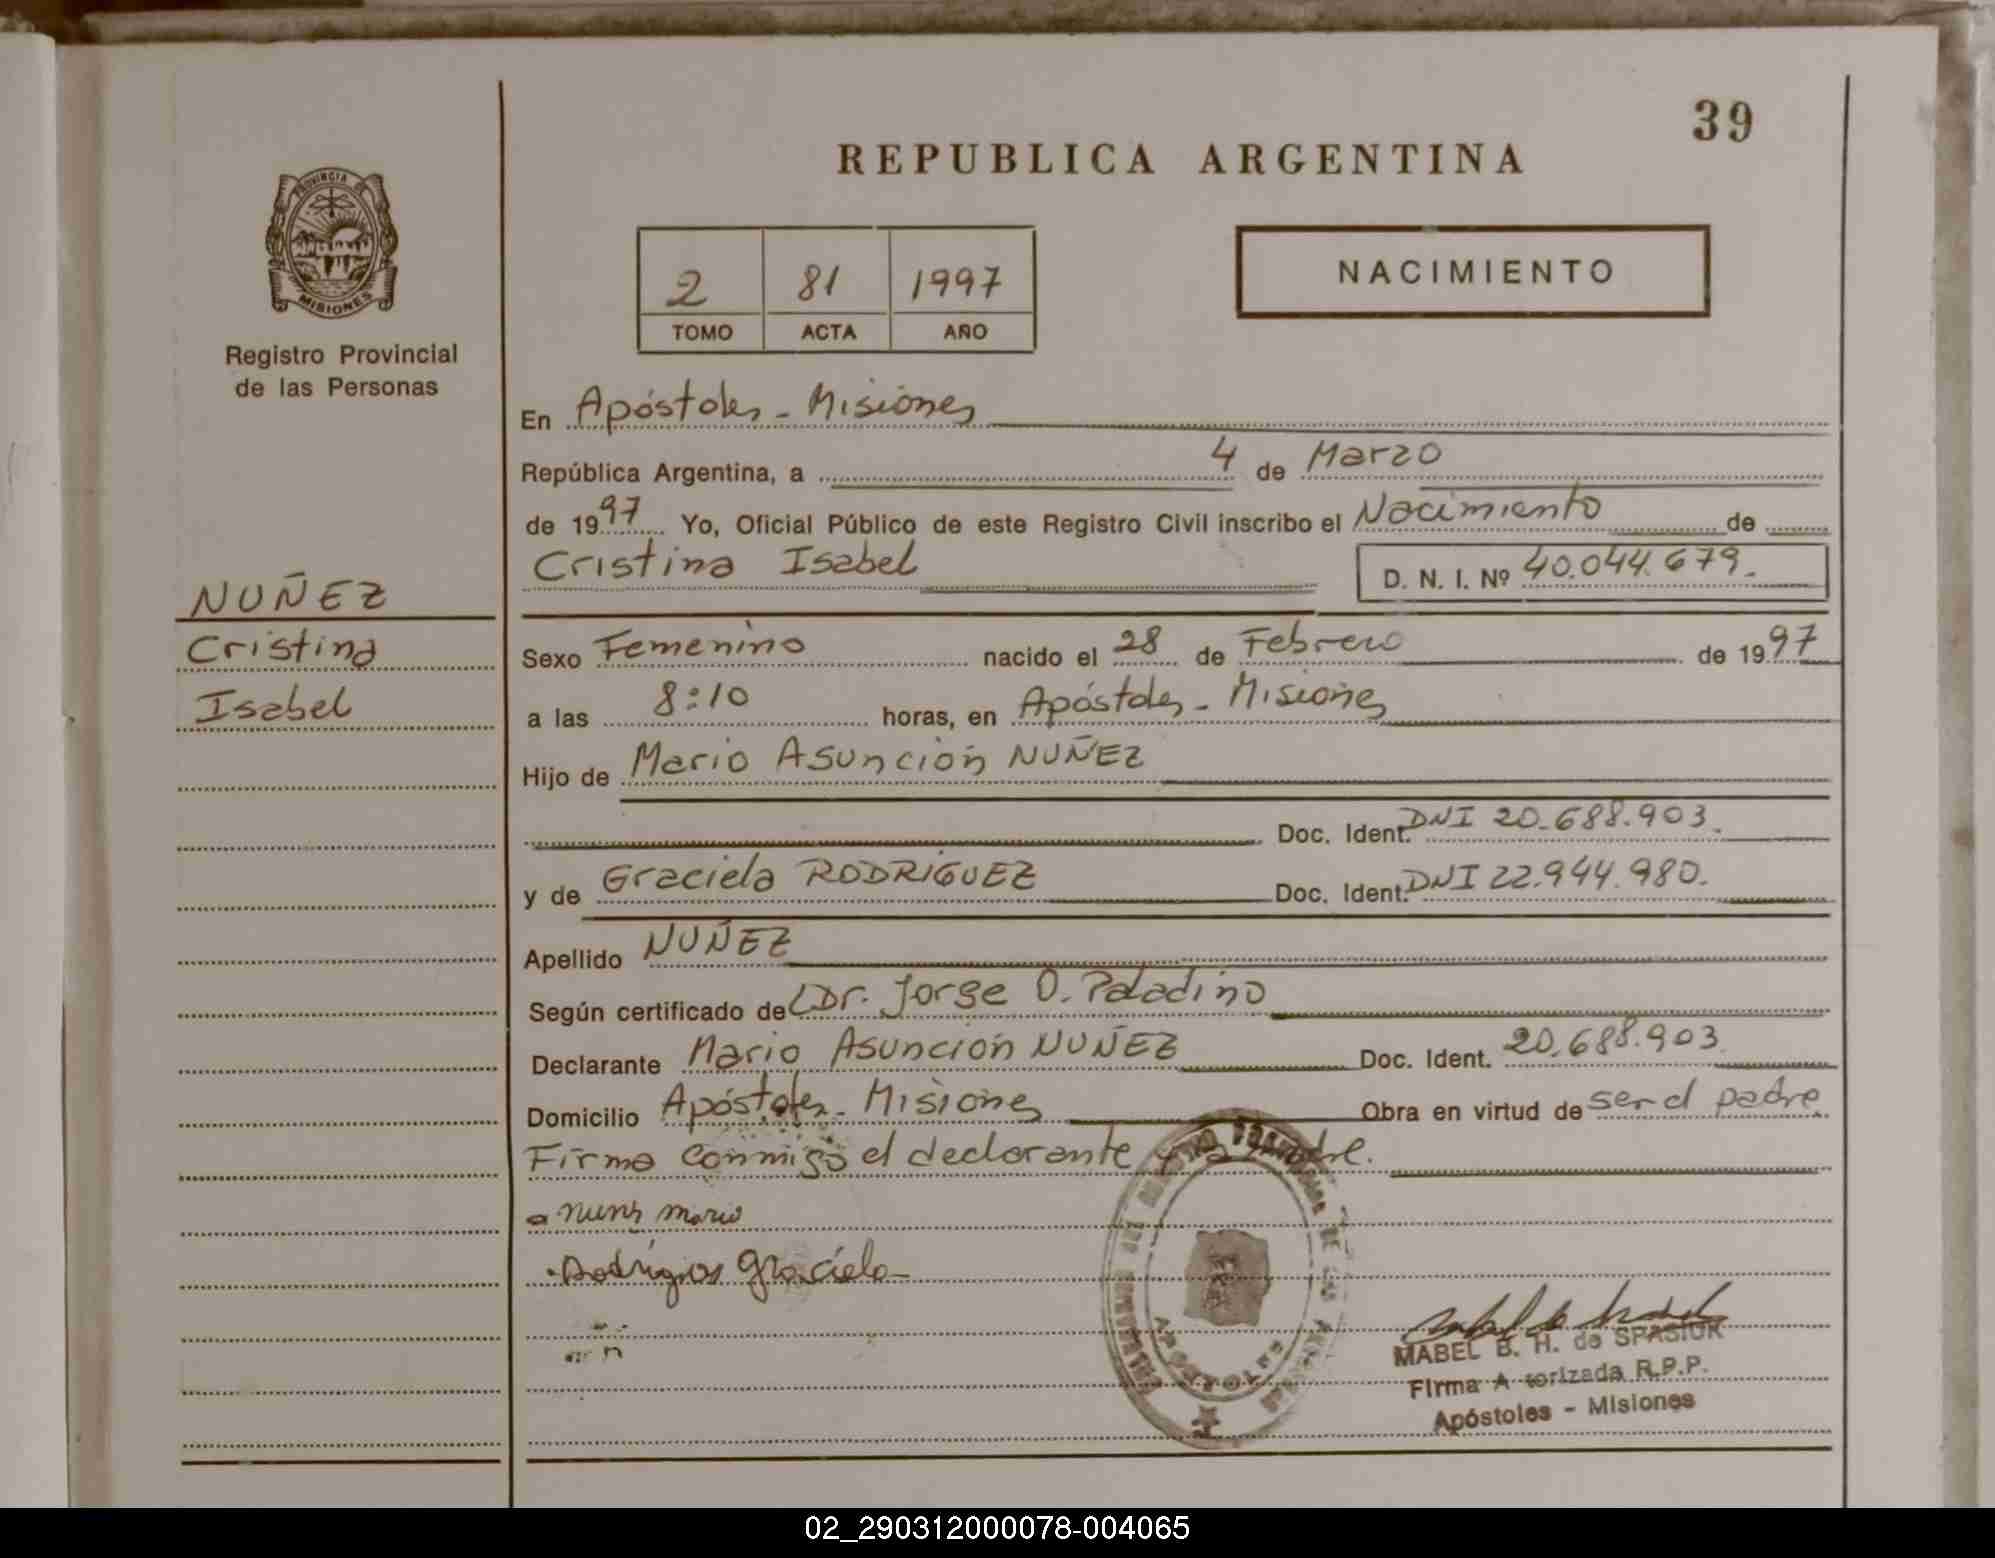 39
REPUBLICA ARGENTINA
PROVINCIA DE
MISIONES
Registro Provincial
de las Personas
2 81 1997
TOMO ACTA AÑO
NACIMIENTO
En Apóstoles - Misiones
República Argentina, a 4 de Marzo
de 1997 Yo, Oficial Público de este Registro Civil inscribo el Nacimiento de
Cristina Isabel D. N. I. Nº 40.044.679.
NUÑEZ
Cristina
Isabel
Sexo Femenino nacido el 28 de Febrero de 1997
a las 8:10 horas, en Apóstoles - Misiones
Hijo de Mario Asunción NUÑEZ
Doc. Ident. DNI 20.688.903.
y de Graciela RODRIGUEZ Doc. Ident. DNI 22.944.980.
Apellido NUÑEZ
Según certificado de Dr. Jorge O. Paladino
Declarante Mario Asunción NUÑEZ Doc. Ident. 20.688.903.
Domicilio Apóstoles - Misiones Obra en virtud de ser el padre
Firma conmigo el declarante y la madre.
mario
Graciela
APOSTOLES
MABEL B. H. de SPASIUK
Firma A torizada R.P.P.
Apóstoles - Misiones
02_290312000078-004065